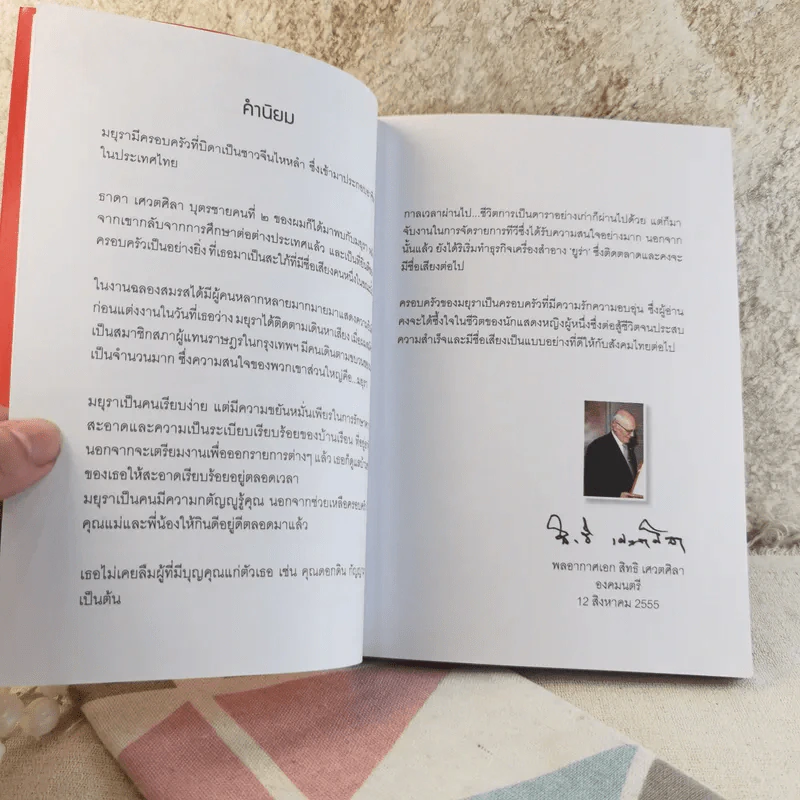 คำนิยม
มยุรามีครอบครัวที่บิดาเป็นชาวจีนไหหลำ ซึ่งเข้ามาประกอบอาชีพ
ในประเทศไทย
ธาดา เศวตศิลา บุตรชายคนที่ ๒ ของผมก็ได้มาพบกับมยุรา
จากเขากลับจากการศึกษาต่อต่างประเทศแล้ว และเป็นที่ยินดี
ครอบครัวเป็นอย่างยิ่ง ที่เธอมาเป็นสะใภ้ที่มีชื่อเสียงคนหนึ่งใน
ในงานฉลองสมรสได้มีผู้คนหลากหลายมากมายมาแสดงความ
ก่อนแต่งงานในวันที่เธอว่าง มยุราได้ติดตามเดินหาเสียง
เป็นสมาชิกสภาผู้แทนราษฎรในกรุงเทพฯ มีคนเดินตามขบวน
เป็นจำนวนมาก ซึ่งความสนใจของพวกเขาส่วนใหญ่คือ...มยุรา
มยุราเป็นคนเรียบง่าย แต่มีความขยันหมั่นเพียรในการรักษา
สะอาดและความเป็นระเบียบเรียบร้อยของบ้านเรือน
นอกจากจะเตรียมงานเพื่อออกรายการต่างๆ แล้ว เธอก็ดูแล
ของเธอให้สะอาดเรียบร้อยอยู่ตลอดเวลา
มยุราเป็นคนมีความกตัญญูรู้คุณ นอกจากช่วยเหลือครอบครัว
คุณแม่และพี่น้องให้กินดีอยู่ดีตลอดมาแล้ว
เธอไม่เคยลืมผู้ที่มีบุญคุณแก่ตัวเธอ เช่น คุณดอกดิน
เป็นต้น
กาลเวลาผ่านไป...ชีวิตการเป็นดาราอย่างเก่าก็ผ่านไปด้วย แต่ก็มา
จับงานในการจัดรายการทีวีซึ่งได้รับความสนใจอย่างมาก นอกจาก
นั้นแล้ว ยังได้ริเริ่มทำธุรกิจเครื่องสำอาง 'ยูร่า' ซึ่งติดตลาดและคงจะ
มีชื่อเสียงต่อไป
ครอบครัวของมยุราเป็นครอบครัวที่มีความรักความอบอุ่น ซึ่งผู้อ่าน
คงจะได้ซึ้งใจในชีวิตของนักแสดงหญิงผู้หนึ่งซึ่งต่อสู้ชีวิตจนประสบ
ความสำเร็จและมีชื่อเสียงเป็นแบบอย่างที่ดีให้กับสังคมไทยต่อไป
พลอากาศเอก สิทธิ เศวตศิลา
องคมนตรี
12 สิงหาคม 2555